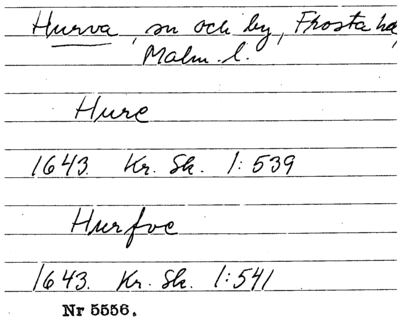 Hurva, sn och by, Frosta hd,
Malm. l.
Hure
1643. Kr. Sk. 1:539
Hurfve
1643. Kr. Sk. 1:541
Nr 5556.